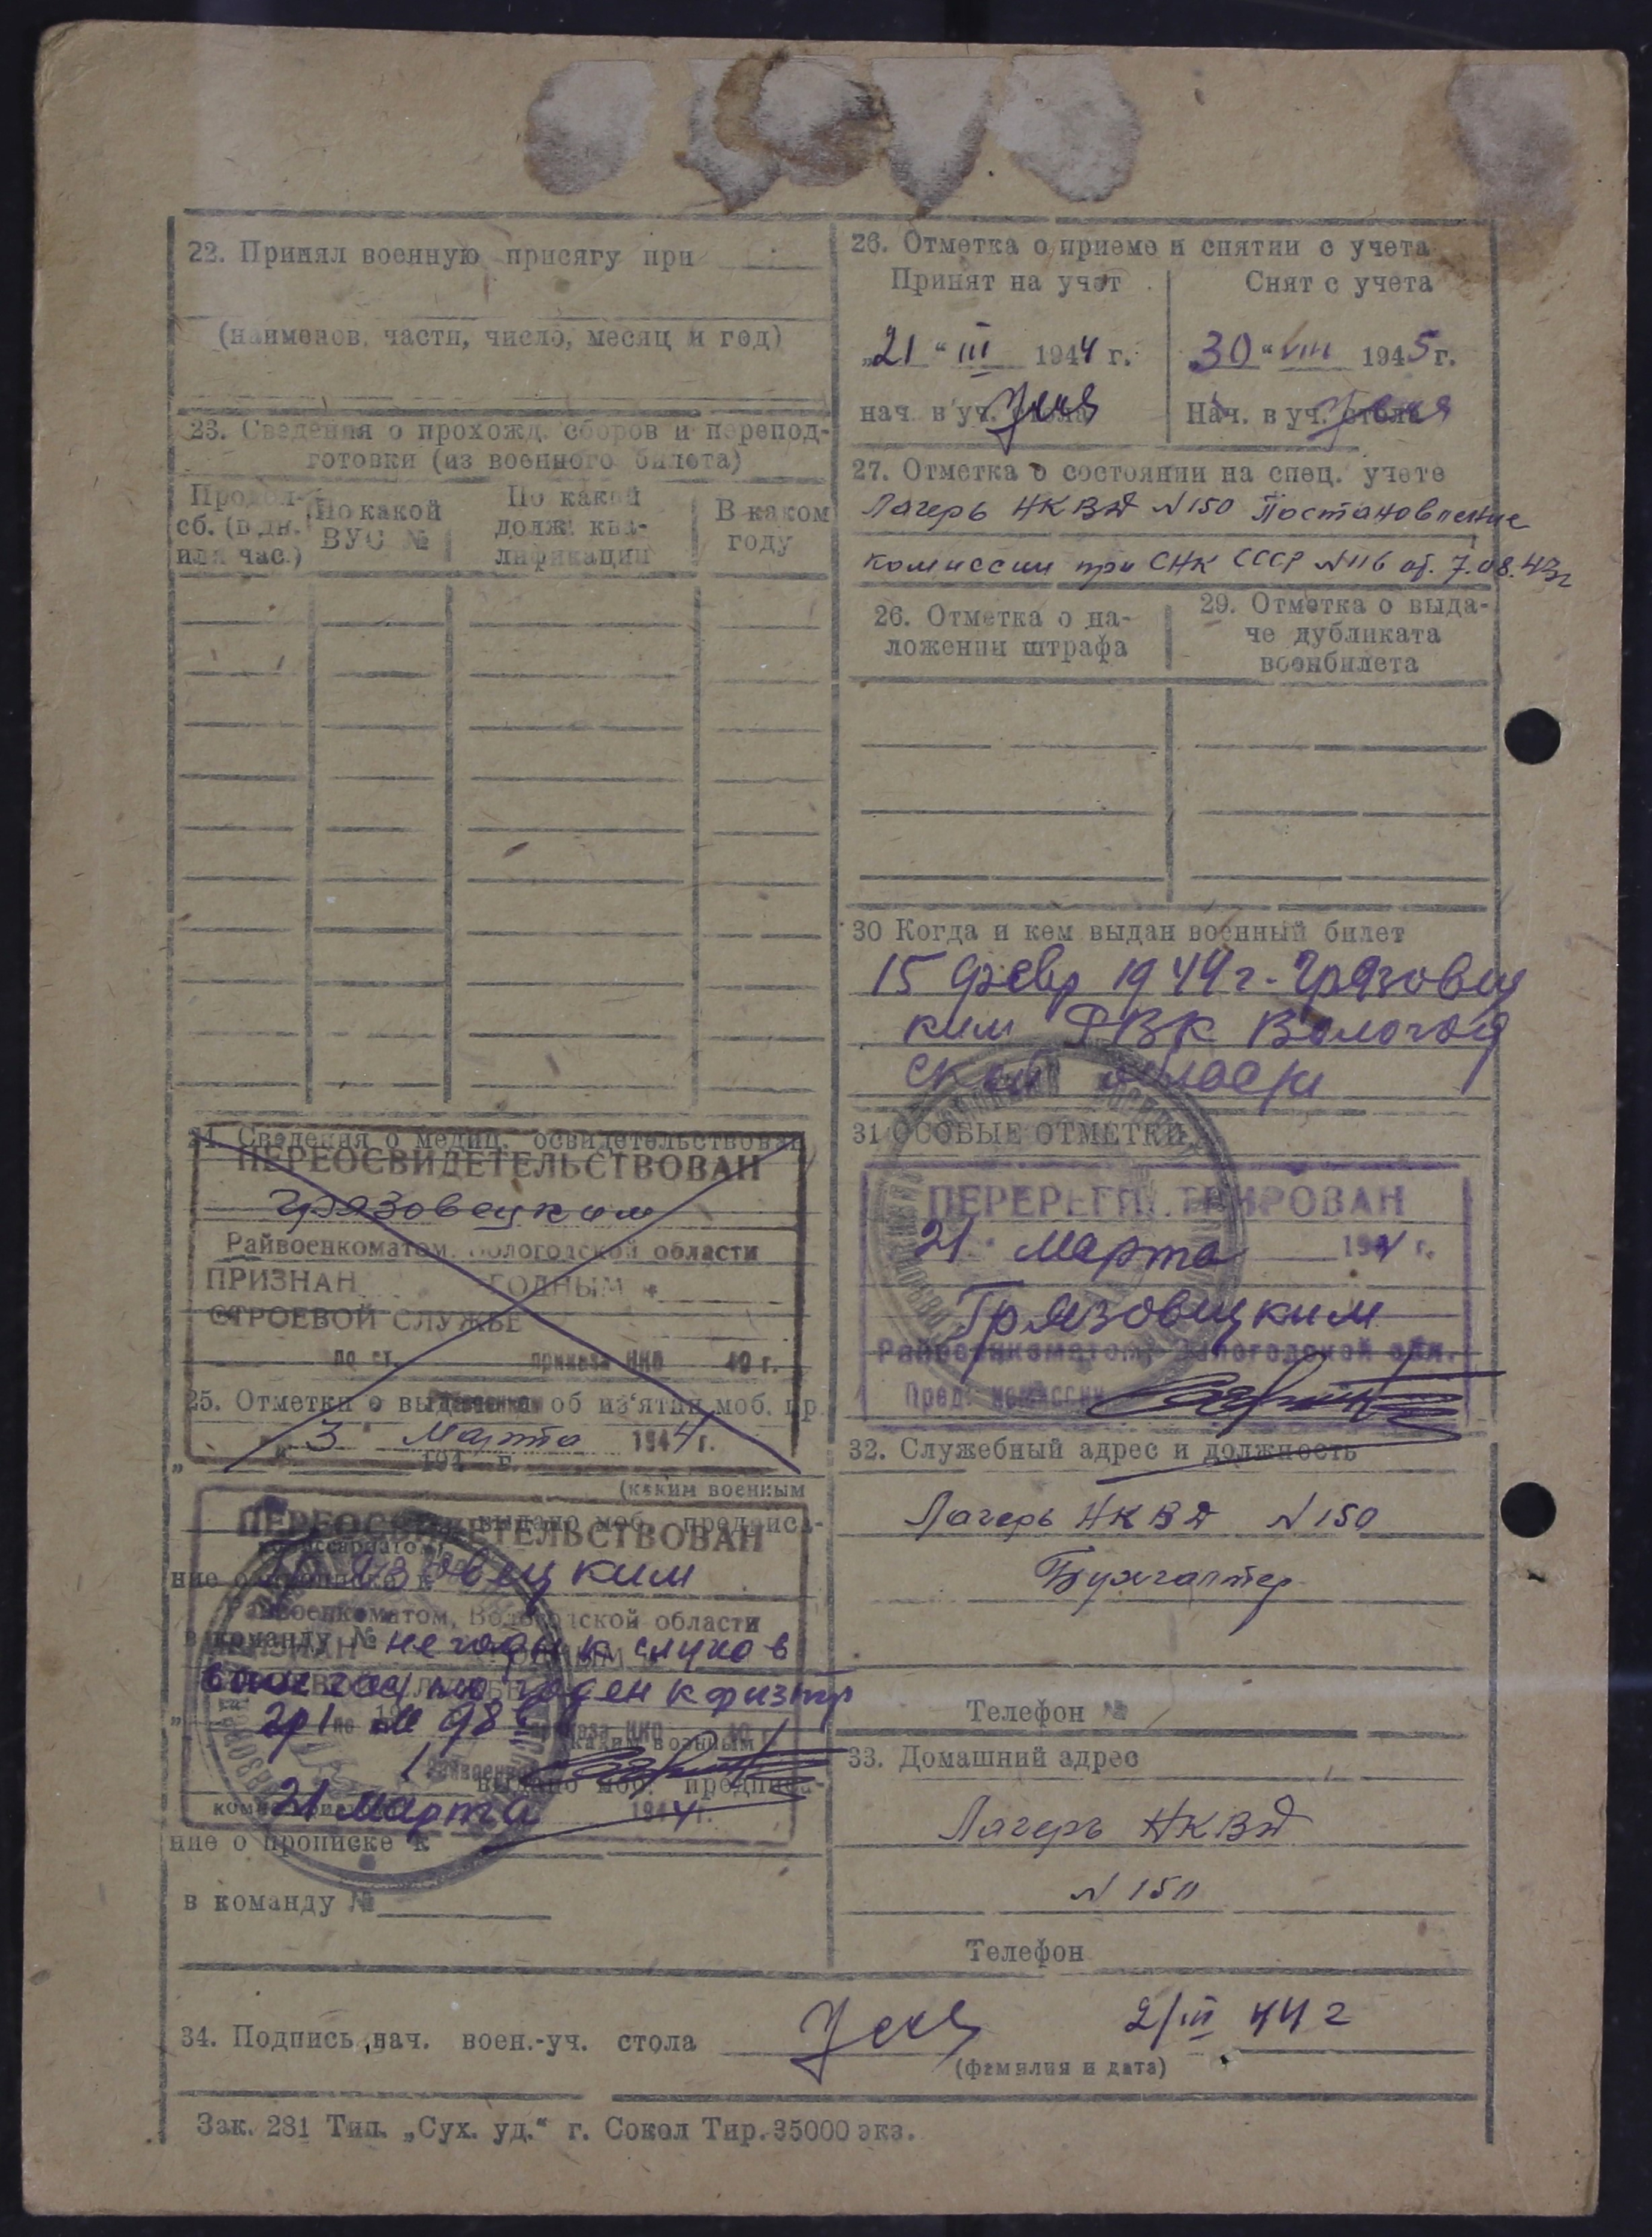 22. Принял военную присягу при
(наименов. части, число, месяц и год)
23. Сведения о прохожд. сборов и перепод-
готовки (из военного билета)
Продол-
сб. (в дн.
или час.)
По какой
ВУС №
По какой
долж. ква-
лификации
В каком
году
24. Сведения о медиц. освидетельствован
ПЕРЕОСВИДЕТЕЛЬСТВОВАН
Грязовецким
Райвоенкоматом, Вологодской области
ПРИЗНАН ГОДНЫМ к
СТРОЕВОЙ СЛУЖБЕ
по ст. приказа НКО 40 г.
25. Отметки о выдаче и об из'ятии моб. пр.
„ 3 " Марта 1944 г.
„ 194 г.
(каким военным
выдано моб. предписа-
ПЕРЕОСВИДЕТЕЛЬСТВОВАН
Грязовецким
ние о прописке к
Райвоенкоматом, Вологодской области
в команду №
не годен к
годен к физтр
гр 1 98
приказа НКО 40 г.
выдано моб. предписа-
21 марта 1944 г.
ние о прописке к
в команду №
26. Отметка о приеме и снятии с учета
Принят на учет
Снят с учета
„21" III 1944 г.
„30" VIII 1945 г.
нач. в уч. стола
Нач. в уч. стола
27. Отметка о состоянии на спец. учете
Лагерь НКВД N 150 Постановление
комиссии при СНК СССР N 116 от. 7.08.43г
26. Отметка о на-
ложении штрафа
29. Отметка о выда-
че дубликата
военбилета
30 Когда и кем выдан военный билет
15 февр 1944 г. Грязовец
ким РВК Вологод
ской области
31 ОСОБЫЕ ОТМЕТКИ
ПЕРЕРЕГИСТРИРОВАН
21 Марта 1944 г.
Грязовецким
Райвоенкоматом, Вологодской обл.
Пред. комиссии
32. Служебный адрес и должность
Лагерь НКВД N 150
Бухгалтер
Телефон №
33. Домашний адрес
Лагерь НКВД
N 150
Телефон
34. Подпись нач. воен.-уч. стола 21/III 44 г
(фамилия и дата)
Зак. 281 Тип. „Сух. уд.“ г. Сокол Тир. 35000 экз.